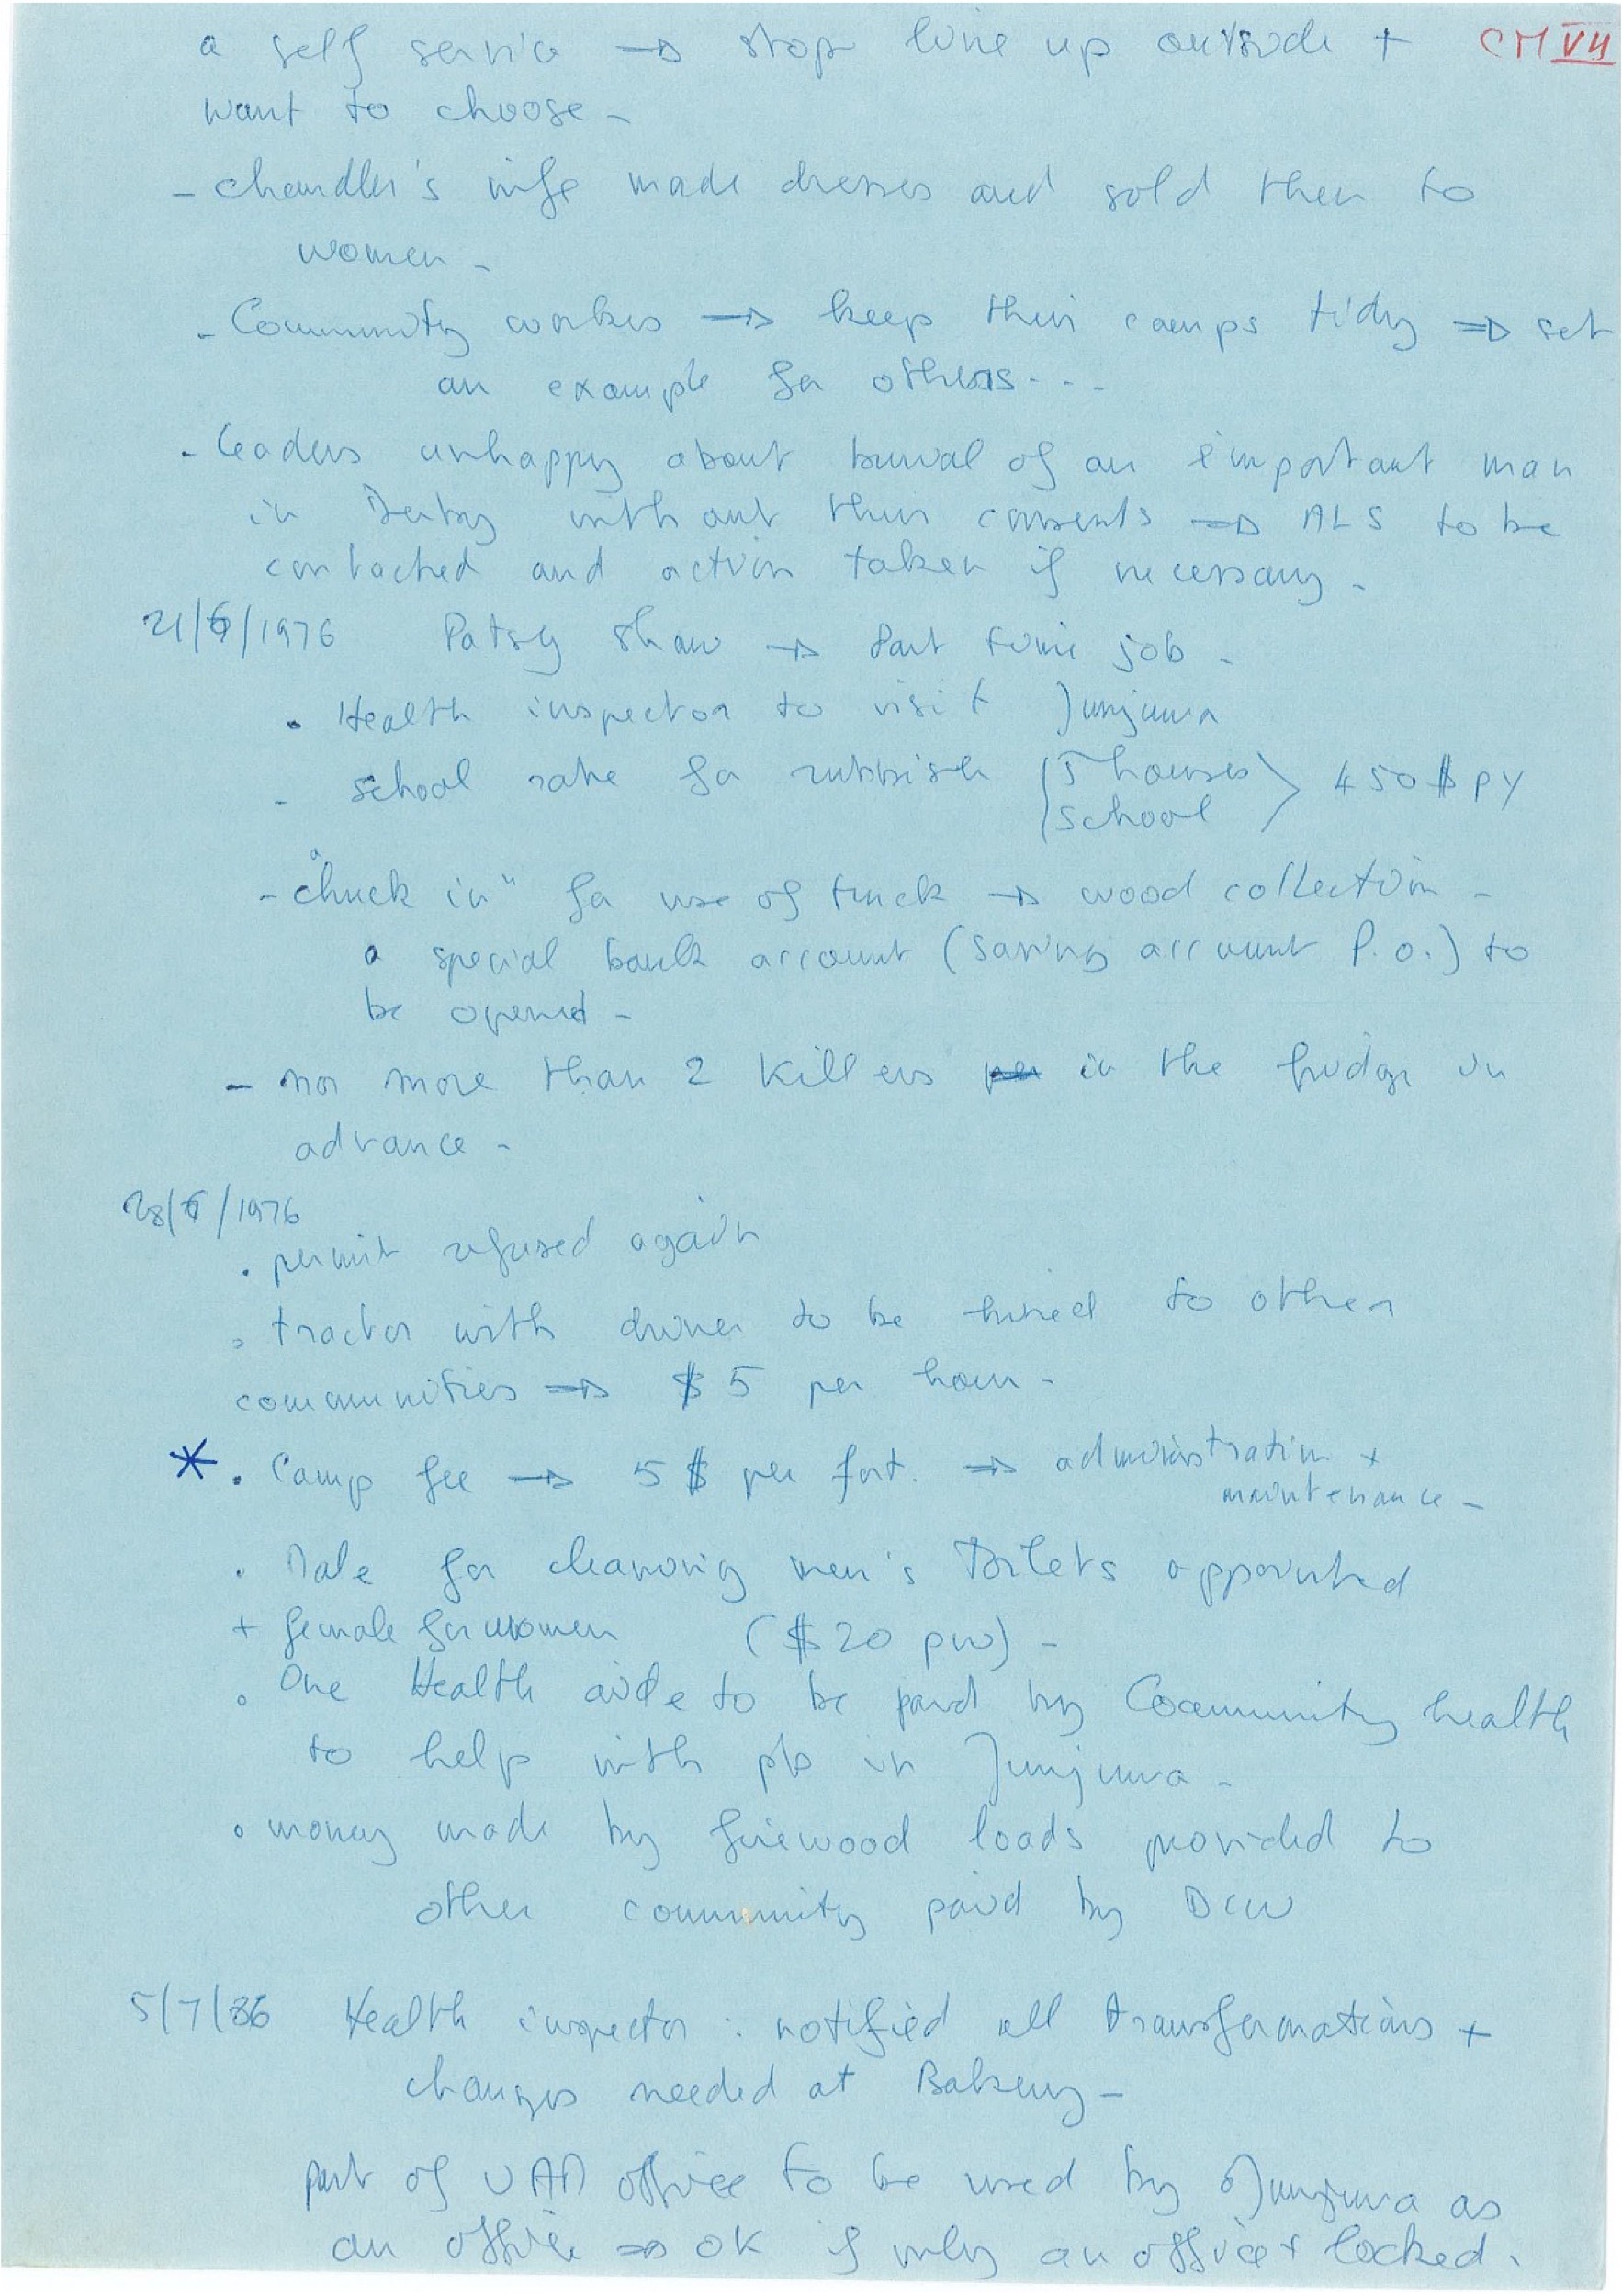 a self service → stop line up outside + CM VII
want to choose -
- Chandler's wife made dresses and sold them to
women -
- Community workers → keep their camps tidy ⇒ set
an example for others...
- leaders unhappy about burial of an important man
in Derby without their consents ⇒ ALS to be
contacted and action taken if necessary -
21/6/1976 Patsy Shaw → Part time job -
• Health inspector to visit Junjuwa
- school rate for rubbish (5 houses
(school > 450 $ py
- "chuck in" for use of truck → wood collection -
a special bank account (saving account P.O.) to
be opened -
- no more than 2 killers in the fridge in
advance -
28/6/1976
• permit refused again
• tractor with driver to be hired to other
communities ⇒ $ 5 per hour -
* • Camp fee → 5 $ per fort. ⇒ administration +
maintenance -
• Male for cleaning men's toilets appointed
+ female for women ($ 20 pw) -
• One Health aide to be paid by Community health
to help with pb in Junjuwa -
• money made by firewood loads provided to
other community paid by DCW
5/7/86 Health inspector : notified all transformations +
changes needed at Bakery -
part of UAM office to be used by Junjuwa as
an office ⇒ OK if only an office + locked.